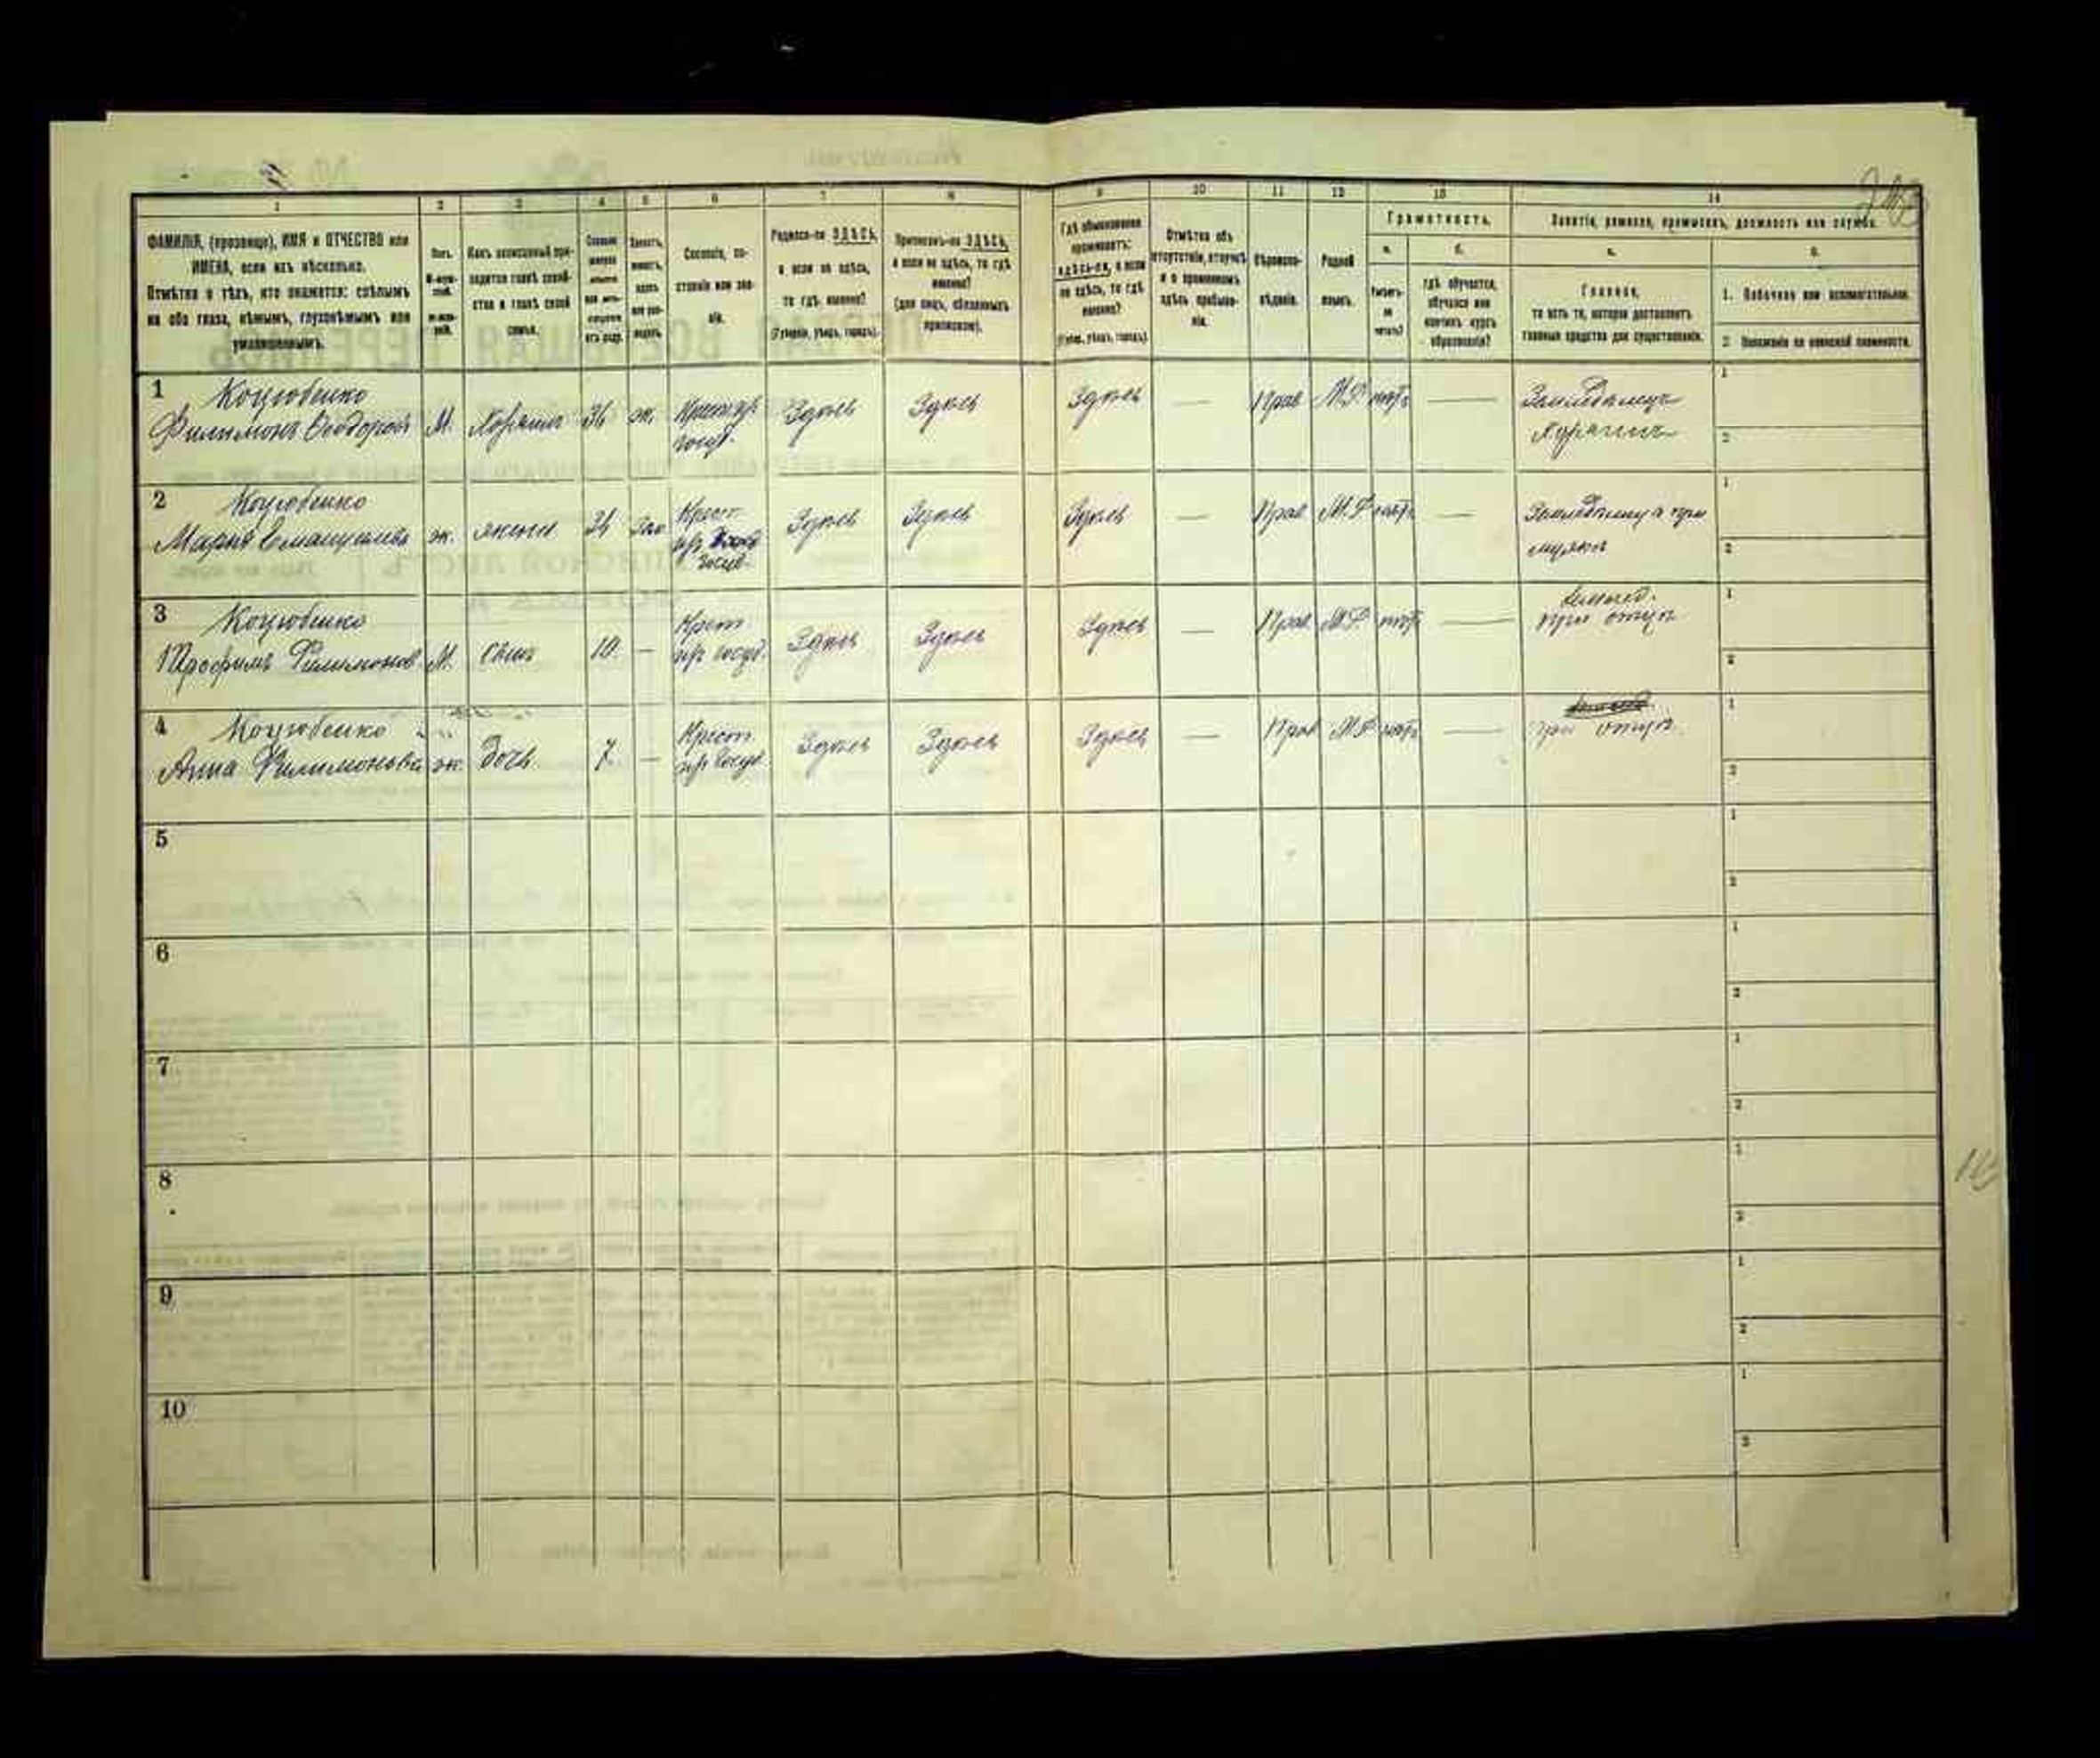 1 2 3 4 5 6 7 8 9 10 11 12 13 14
ФАМИЛІЯ, (прозвище), ИМЯ и ОТЧЕСТВО или
ИМЕНА, если ихъ нѣсколько.
Отмѣтка о тѣхъ, кто окажется: слѣпымъ
на оба глаза, нѣмымъ, глухонѣмымъ или
умалишеннымъ.
Полъ.
М-муж-
ской.
ж-жен-
скій.
Какъ записанный при-
ходится главѣ хозяй-
ства и главѣ своей
семьи.
Сколько
минуло
лѣтъ
или мѣ-
сяцевъ
отъ роду.
Холостъ,
женатъ,
вдовъ
или раз-
веденъ.
Сословіе, со-
стояніе или зва-
ніе.
Родился-ли ЗДѢСЬ,
а если не здѣсь,
то гдѣ именно?
(Губернія, уѣздъ, городъ).
Приписанъ-ли ЗДѢСЬ,
а если не здѣсь, то гдѣ
именно?
(для лицъ, обязанныхъ
припискою).
Гдѣ обыкновенно
проживаетъ:
здѣсь-ли, а если
не здѣсь, то гдѣ
именно?
(Губер., уѣздъ, городъ).
Отмѣтка объ
отсутствіи, отлучкѣ
и о временномъ
здѣсь пребыва-
ніи.
Вѣроиспо-
вѣданіе.
Родной
языкъ.
Грамотность.
а.
Умѣетъ-
ли
читать?
б.
гдѣ обучается,
обучался или
кончилъ курсъ
образованія?
Занятіе, ремесло, промыселъ, должность или служба.
а.
Главное,
то есть то, которое доставляетъ
главныя средства для существованія.
б.
1. Побочное или вспомогательное.
2. Положеніе по воинской повинности.
1 Коцюбенко
Филимонъ Ѳеодоровъ М. Хозяинъ 36 ж. Крест. изъ
госуд. Здѣсь Здѣсь Здѣсь — Прав М.Р нѣтъ — Земледѣлецъ
Хозяинъ
2 Коцюбенко
Мария ж. жена 34 Зам Крест.
изъ
госуд. Здѣсь Здѣсь Здѣсь — Прав М.Р нѣтъ — Земледѣлица при
мужѣ
3 Коцюбенко
Трофимъ Филимонов М. сынъ 10. — Крест
изъ госуд. Здѣсь Здѣсь Здѣсь — Прав М.Р нѣтъ — землед.
при отцѣ
4 Коцюбенко
Анна Филимонова ж. дочь 7. — Крест
изъ госуд. Здѣсь Здѣсь Здѣсь — Прав М.Р нѣтъ —
при отцѣ.
5
6
7
8
9
10